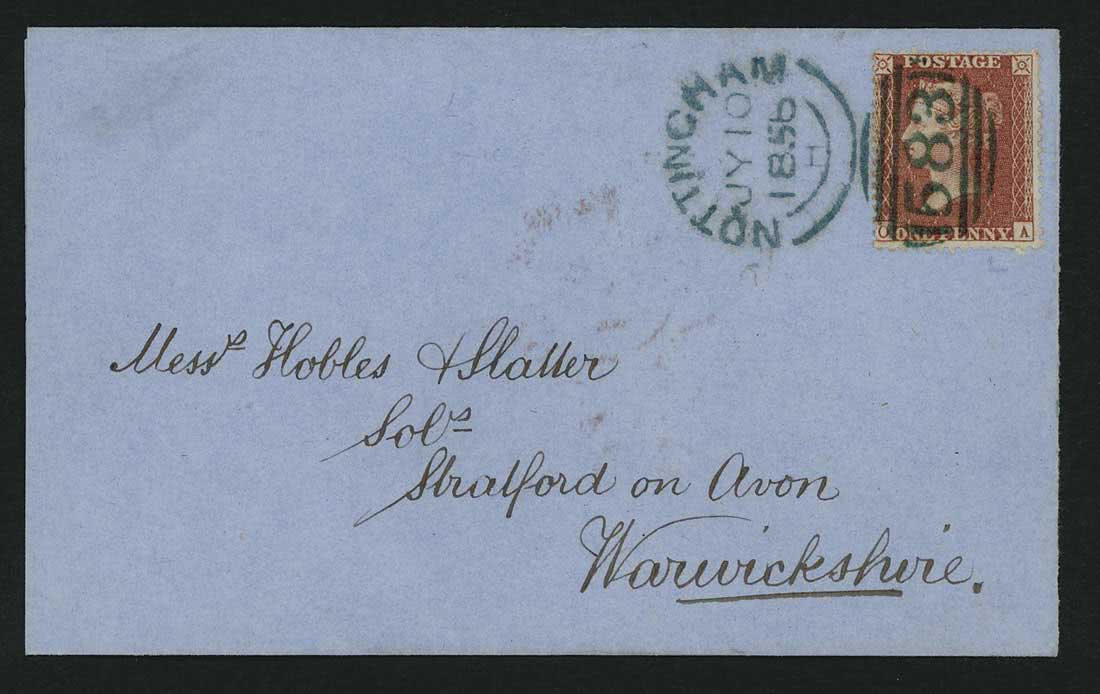 NOTTINGHAM
JY 10
1856
H
583
POSTAGE
ONE PENNY.
O A
Mess^rs Hobles & Slatter
Sol^rs
Stratford on Avon
Warwickshire.